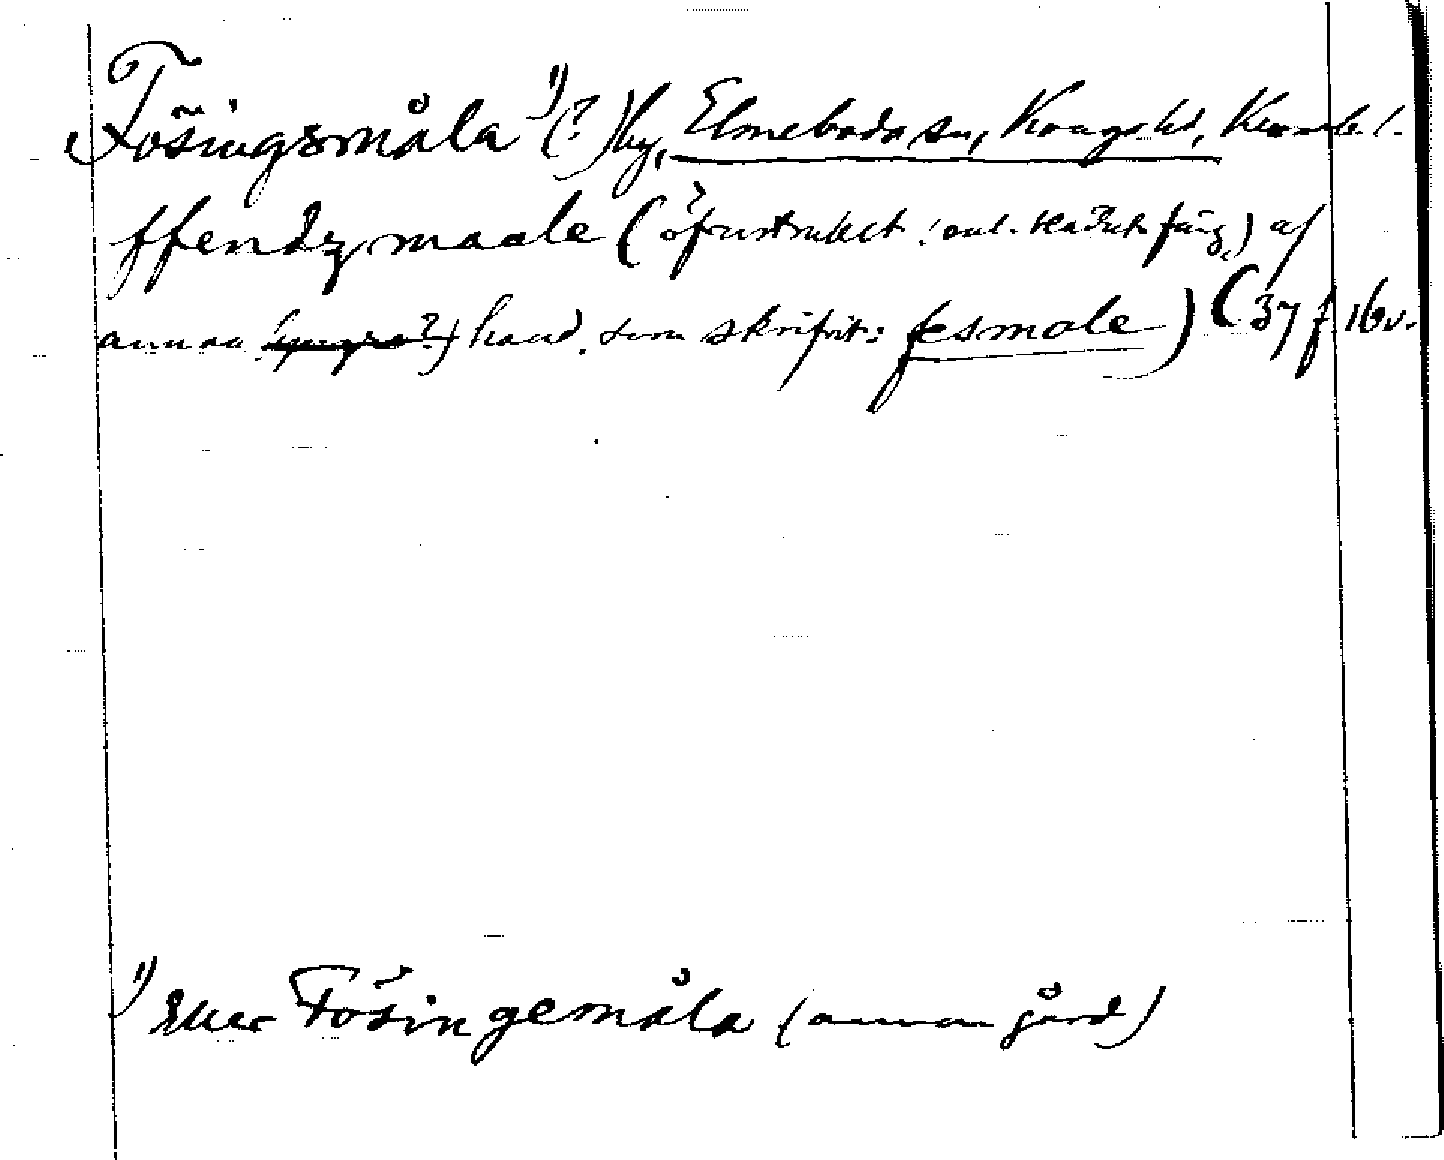 Fösingsmåla 1) (?) by, Elmeboda sn, Konga hd, Kronob. l.
ffendz maale (öfverstruket af
annan (yngre?) hand, som skrifvit: fesmole) (37 f 16v.
1) Eller Fösingemåla (annan gård)